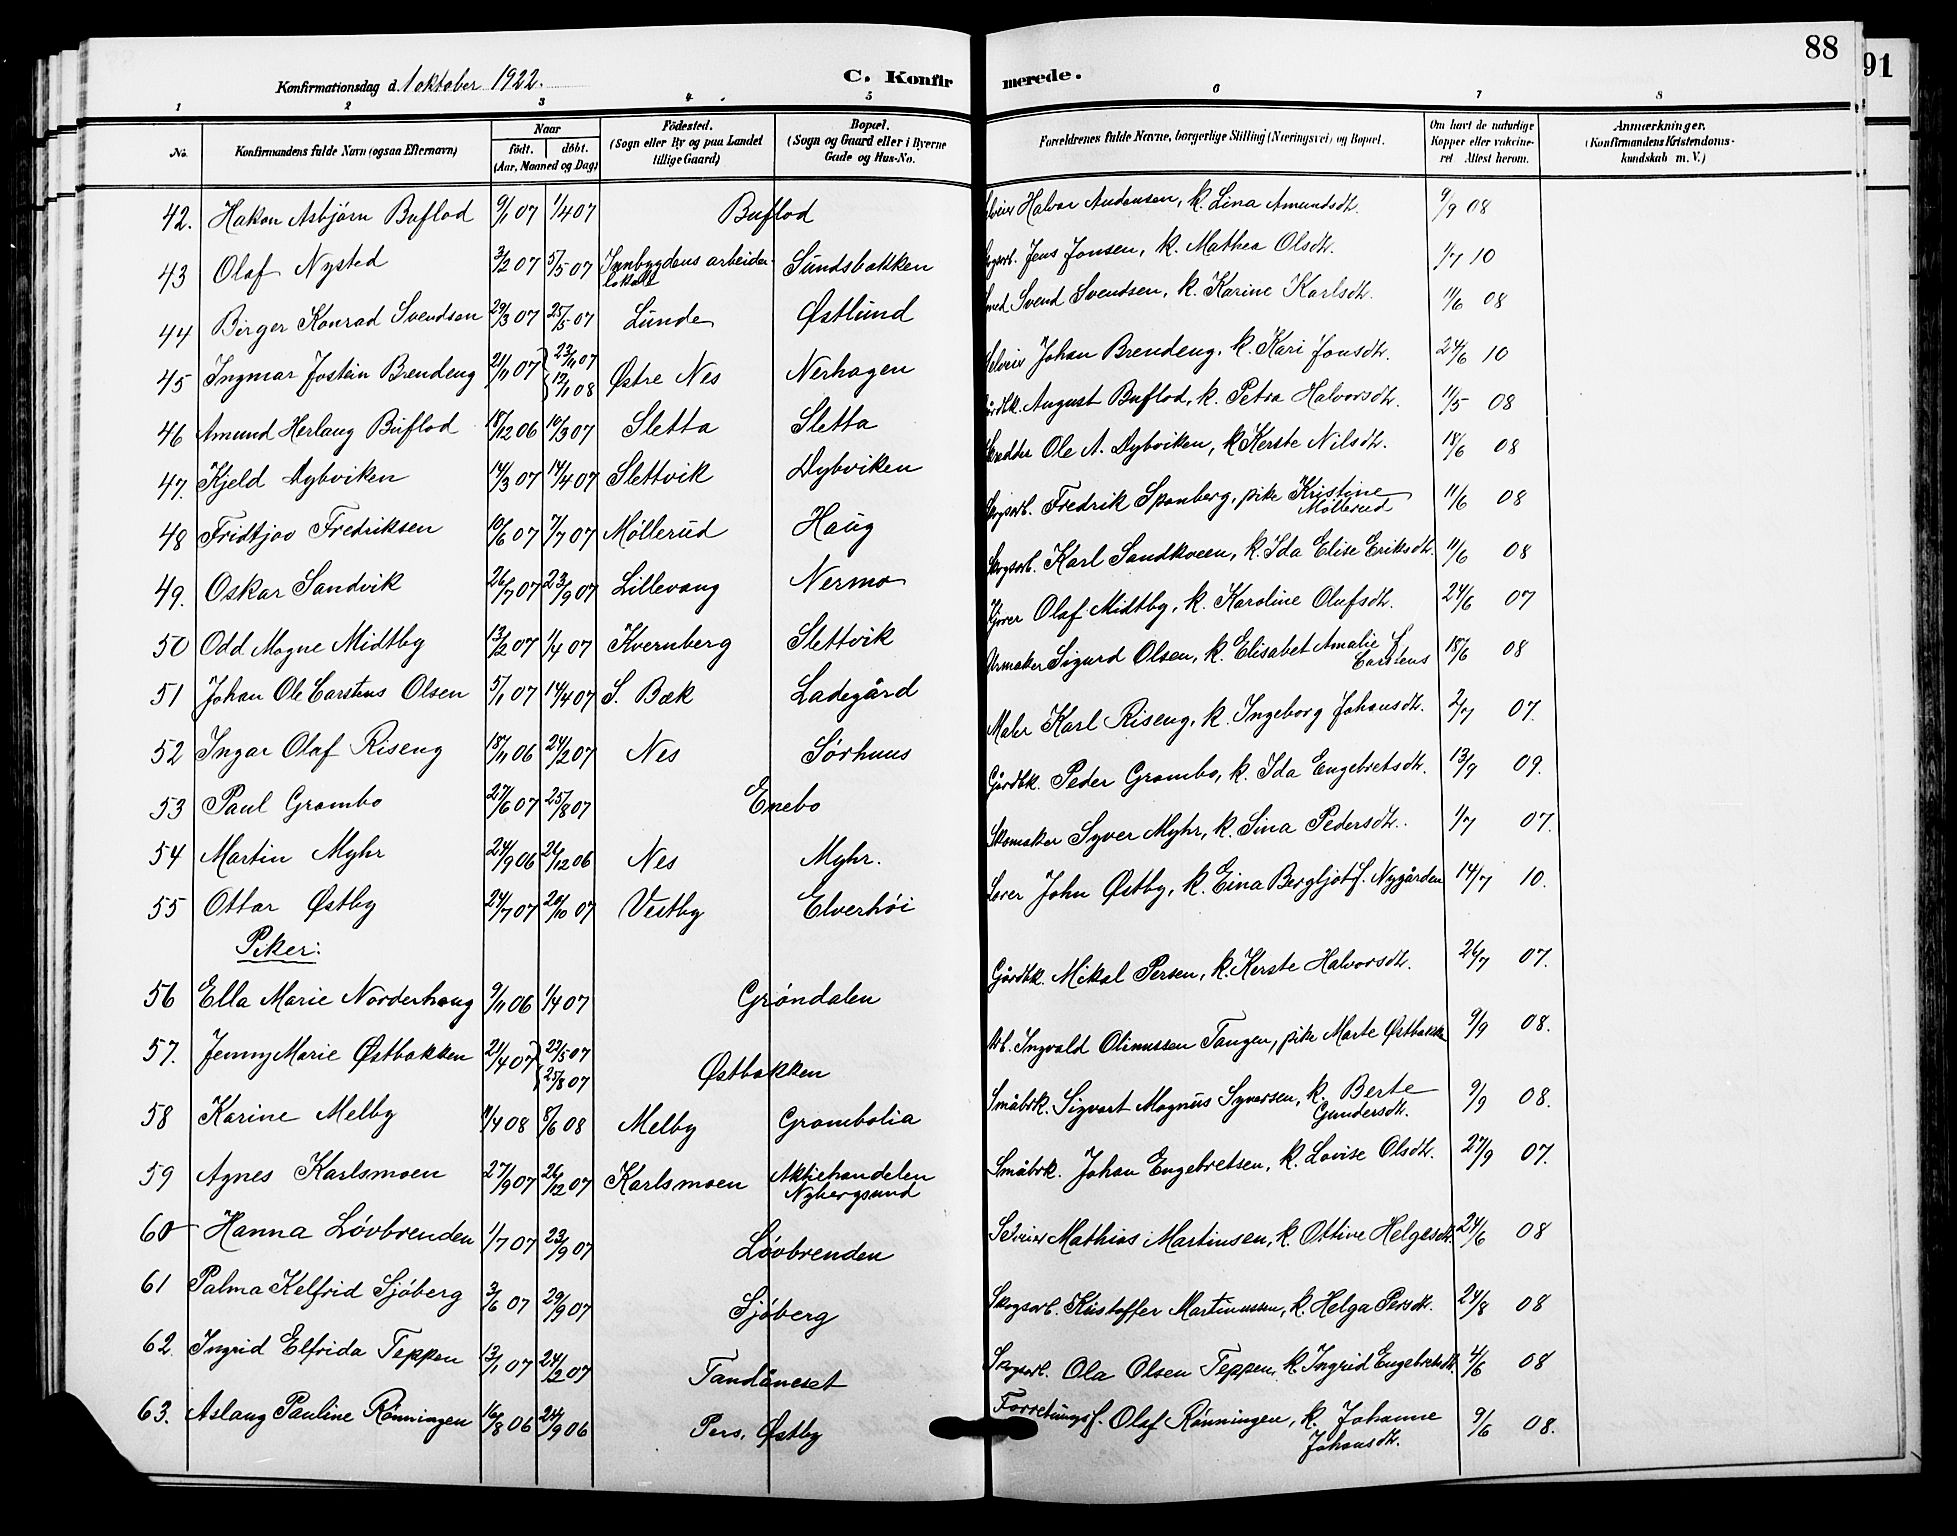 88
91
Konfirmationsdag d. 1 oktober 1922.
C. Konfirmerede.
1 2 3 4 5 6 7 8
No. Konfirmandens fulde Navn (ogsaa Efternavn) Naar født. døbt. (Aar, Maaned og Dag) Fødested. (Sogn eller By og paa Landet tillige Gaard) Bopæl. (Sogn og Gaard eller i Byerne Gade og Hus-No. Forældrenes fulde Navne, borgerlige Stilling (Næringsvei) og Bopæl. Om havt de naturlige Kopper eller vakcineret Attest herom. Anmærkninger. (Konfirmandens Kristendomskundskab m. V.)
42. Hakon Asbjørn Buflod 9/1 07 1/4 07 Buflod Selveier Halvor Andersen, k. Lina Amundsdt. 9/9 08
43 Olaf Nysted 3/2 07 5/5 07 Innbygdens arbeider lokale Sundsbakken Skogsarb. Jens Jonsen, k. Mathea Olsdt. 1/7 10
44 Birger Konrad Svendsen 29/3 07 25/5 07 Lunde Østlund Smed Svend Svendsen, k. Karine Karlsdt. 11/6 08
45 Ingmar Jostein Brendeng 21/11 07 23/11 07 12/1 08 Østre Nes Nerhagen Selveier Johan Brendeng, k. Kari Jonsdt. 24/6 10
46 Amund Herlaug Buflod 18/12 06 10/3 07 Sletta Sletta Gårdbk. August Buflod, k. Petra Halvorsdt. 11/5 08
47. Kjeld Dybviken 14/3 07 14/4 07 Slettvik Dybviken Skredder Ole A. Dybviken, k Kerste Nilsdt. 18/6 08
48 Fridtjov Fredriksen 10/6 07 7/7 07 Møllerud Haug Skogsarb. Fredrik Spanberg, pike Kristine Møllerud 11/6 08
49. Oskar Sandvik 26/7 07 23/9 07 Lillevang Nermo Skogsarb. Karl Sandkveen, k. Ida Elise Eriksdt. 11/6 08
50 Odd Magne Midtby 13/2 07 1/4 07 Kvernberg Slettvik Kjører Olaf Midtby, k. Karoline Olufsdt. 24/6 07
51 Johan Ole Carstens Olsen 5/1 07 14/4 07 S. Bæk Ladegård Urmaker Sigurd Olsen, k. Elisabet Amalie f. Carstens 18/6 08
52 Ingar Olaf Riseng 18/11 06 24/2 07 Nes Sørhuus Maler Karl Riseng, k. Ingeborg Johansdt. 2/7 07.
53 Paul Grambo 27/6 07 25/8 07 Enebo Gårdbk. Peder Grambo, k. Ida Engebretsdt. 13/9 09.
54 Martin Myhr 24/9 06 26/12 06 Nes Myhr. Skomaker Syver Myhr, k. Sina Pedersdt. 1/7 07.
55 Ottar Østby 24/7 07 20/10 07 Vestby Elverhøi Lærer John Østby, k. Eina Bergljot f. Nygården 14/7 10.
Piker:
56 Ella Marie Norderhaug 9/11 06 1/4 07 Grøndalen Gårdbk. Mikal Persen, k. Kerste Halvorsdt. 26/7 07.
57. Jenny Marie Østbakken 21/4 07 22/5 07 25/8 07 Østbakken Arb. Ingvald Olimussen Tangen, pike Marte Østbakken 9/9 08.
58 Karine Melby 11/4 08 8/6 08 Melby Grambolia Småbrk. Sigvart Magnus Syversen, k. Berte Gundersdt. 9/9 08.
59 Agnes Karlsmoen 27/9 07 26/12 07 Karlsmoen Aktiehandelen Nybergsund Småbrk. Johan Engebretsen, k. Lovise Olsdt. 27/9 07.
60 Hanna Løvbrenden 1/7 07 23/9 07 Løvbrenden Selveier Mathias Martinsen, k. Ottine Helgesdt. 24/6 08
61 Palma Kelfrid Sjøberg 3/6 07 29/9 07 Sjøberg Skogsarb. Kristoffer Martinussen, k. Helga Persdt. 24/8 08
62. Ingrid Elfrida Teppen 13/1 07 24/2 07 Tandåneset Skogsarb. Ola Olsen Teppen, k. Ingrid Engebretsdt. 4/6 08
63. Aslaug Pauline Rønningen 16/8 06 24/9 06 Pers, Østby Forretningsf. Olaf Rønningen, k. Johanne Johansdt. 9/6 08.